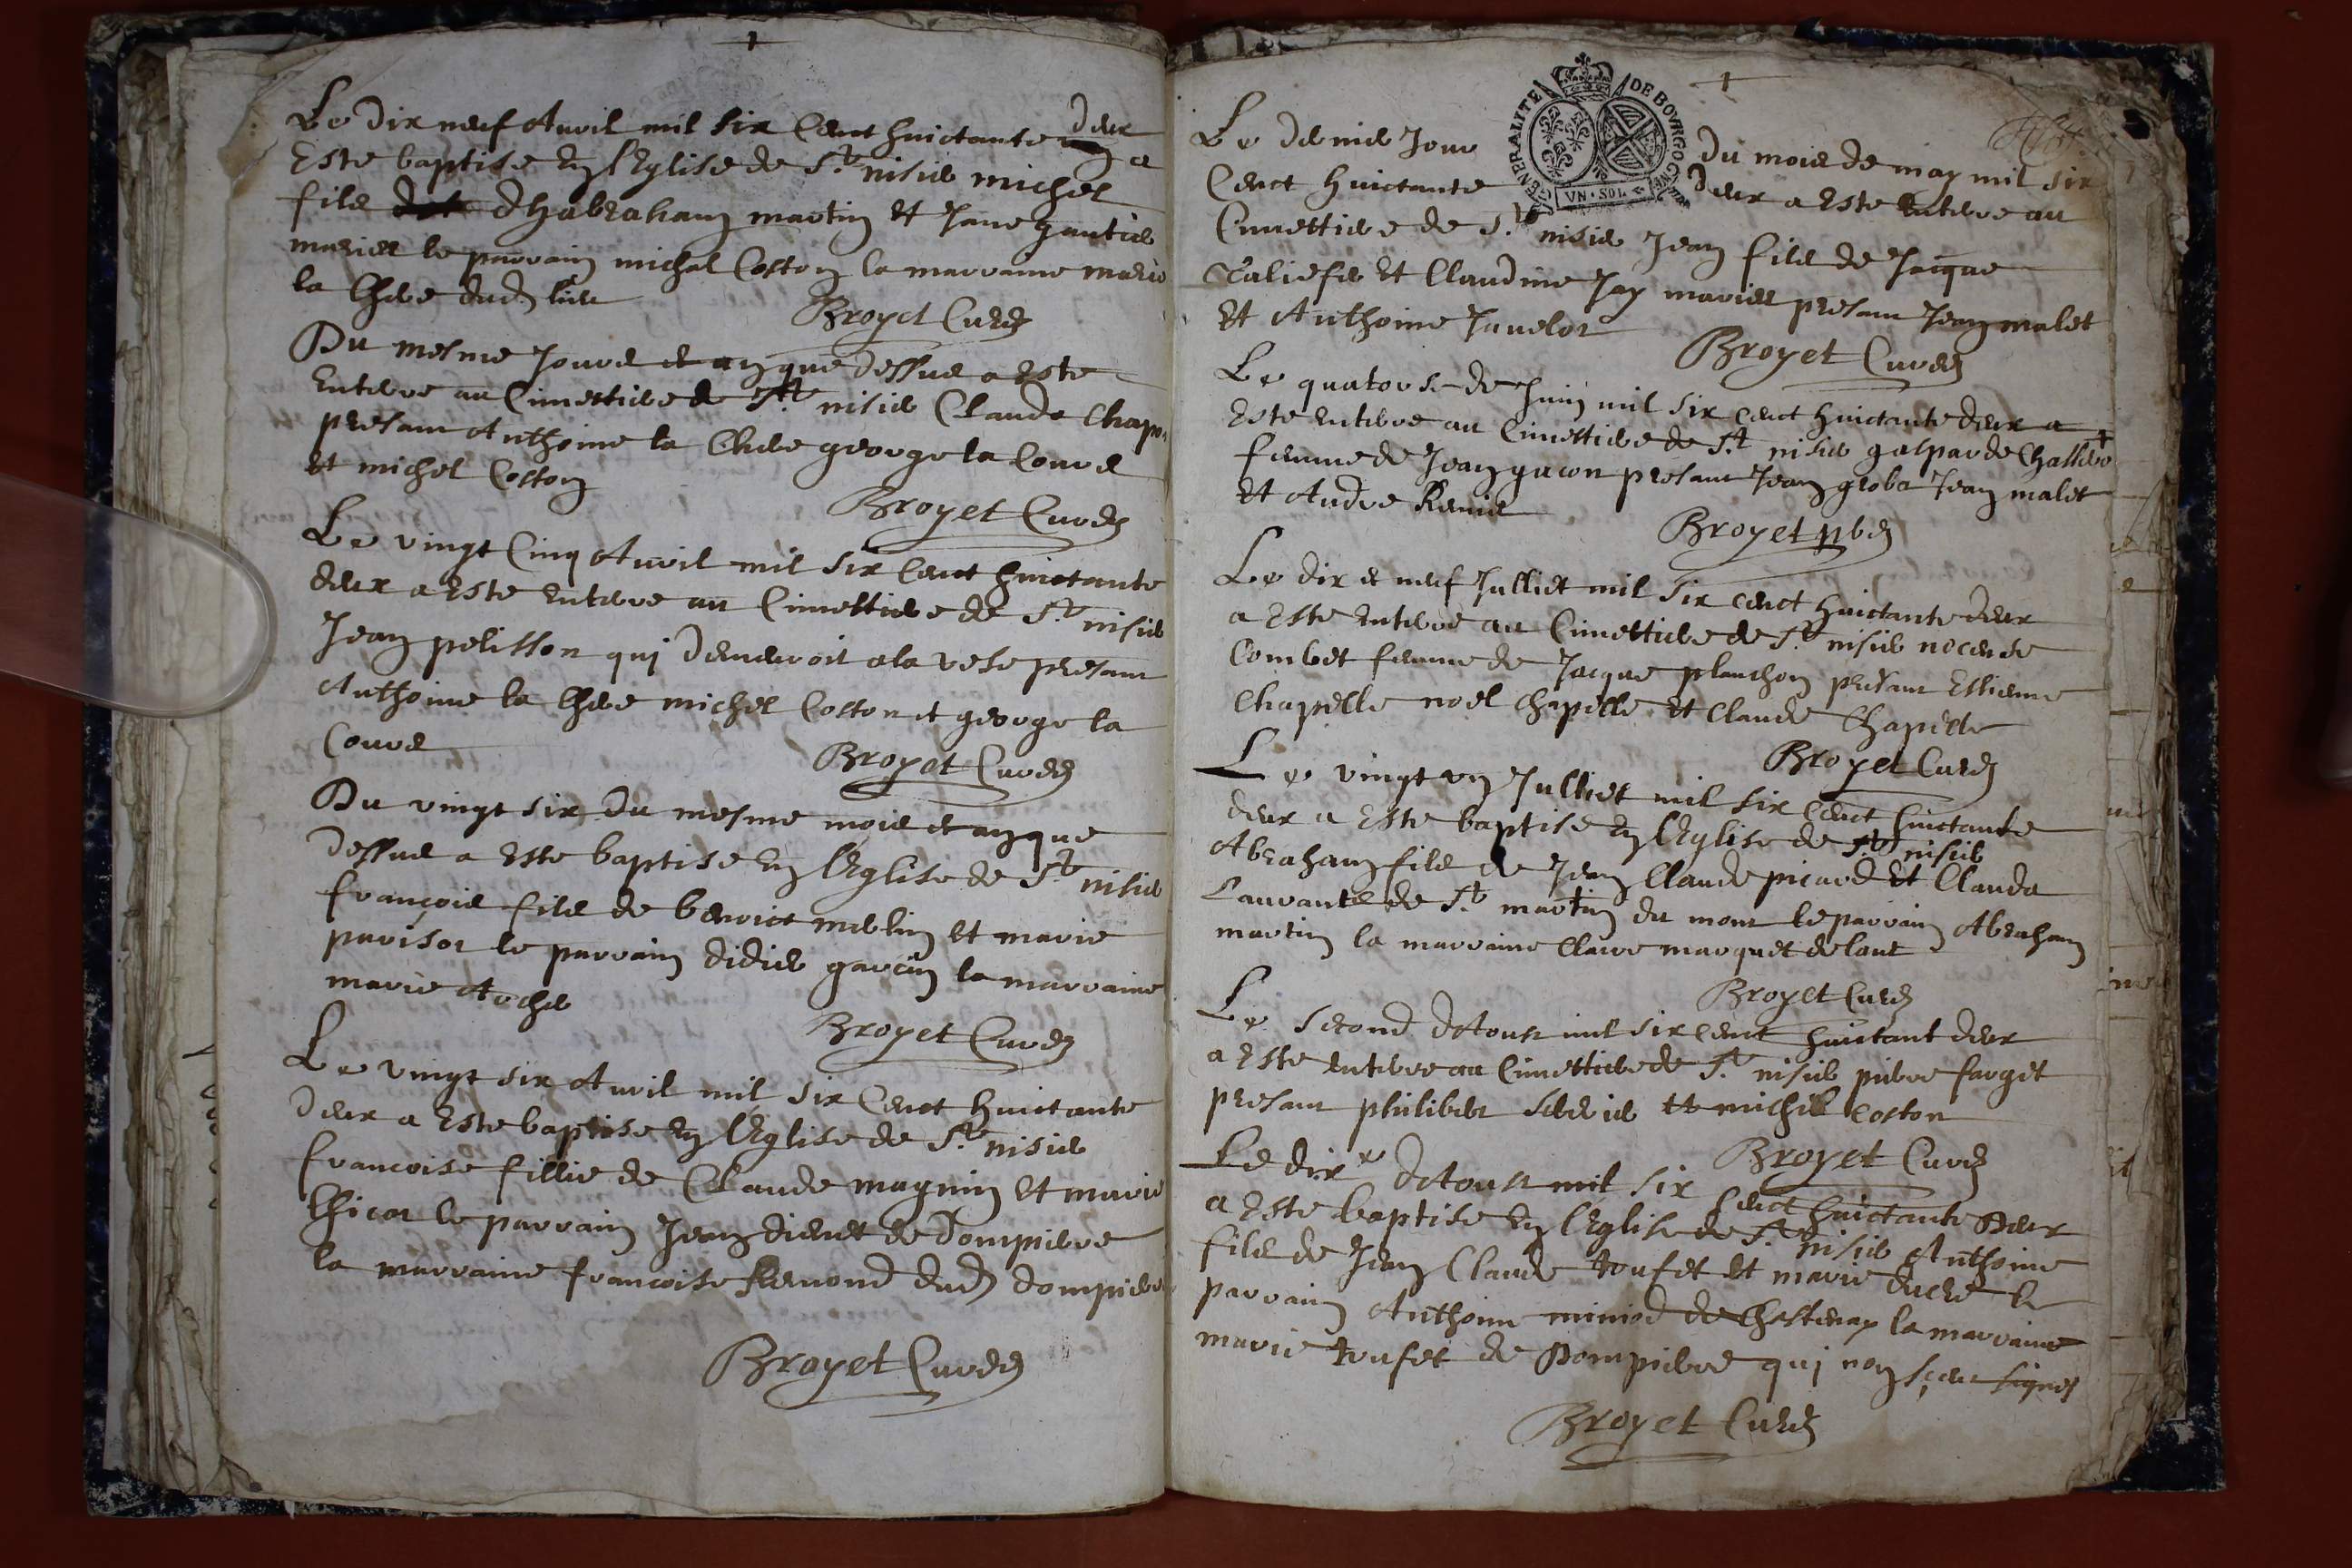 Le dix neuf Avril mil six Cenct huictante deux a
Este baptisé En l'Eglise de St. nisier michel
fils dhabraham martin Et Jane gautier
mariez le parrain michel Coston la marraine marie
la Chere dud lieu
Broyet Curé
Du mesme Jours et an que dessus a Este
Enterre au Cimettiere de St. nisier Claude Chap
presant Anthoine la Chere george la Cours
Et michel Coston
Broyet Curé
Le vingt Cinq Avril mil six Cenct huictante
deux a Este Enterre au Cimettiere de St. nisier
Jean pelisson qui demeuroit a la vese presant
Anthoine la Chere michel Coston et george la
Cours
Broyet Curé
Du vingt six du mesme mois et an que
dessus a Este baptise En l'Eglise de St. nisier
françois fils de benoict merlin Et marie
parisot le parrain didier garcin la marraine
marie Archer
Broyet Curé
Le vingt six Avril mil six Cenct huictante
deux a Este baptise En l'Eglise de St. nisier
francoise fillie de Claude magnin Et marie
Chicot le parrain Jean dienet de Dompierre
la marraine francoise Remond dud dompierre
Broyet Curé
GENERALITE DE BOVRGOGNE
VN · SOL
Le dernier Jour du mois de may mil six
Cenct huictante deux a Este Enterre au
Cimettiere de St. nisier Jean fils de Jacque
Et Claudine Jay mariez presant Jean malet
Et Anthoine Juvelot
Broyet Curé
Le quatorse de Juin mil six cenct huictante deux a
Este Enterre au Cimettiere de St. nisier gasparde Chassere
femme de Jean gacon presant Jean grobet Jean malet
Et Andre Renier
Broyet pbr
Le dix et neuf Julliet mil six cenct huictante deux
a Este Enterre au Cimettiere de St. nisier
Combet femme de Jacque planchon presant Estienne
Chapelle noel chapelle Et Claude Chapelle
Broyet Curé
Le vingt un Julliet mil six cenct huictante
deux a Este baptise En l'Eglise de St. nisier
Abraham fils de Jean Claude picard Et Clauda
Laurante de St. martin du mont le parrain Abraham
martin la marraine Claire marquet de lant
Broyet Curé
Le second dAoust mil six cenct huictant deux
a Este Enterre au Cimettiere de St. nisier pierre farget
presant philibert Et michel coston
Broyet Curé
Le dix dAoust mil six Cenct huictante Deux
a Este baptise En l'Eglise de St. nisier Anthoine
fils de Jean Claude toufet Et marie ducré le
parrain Anthoine miniod de Chastenay la marraine
marie toufet de Dompierre qui non sceu signer
Broyet Curé